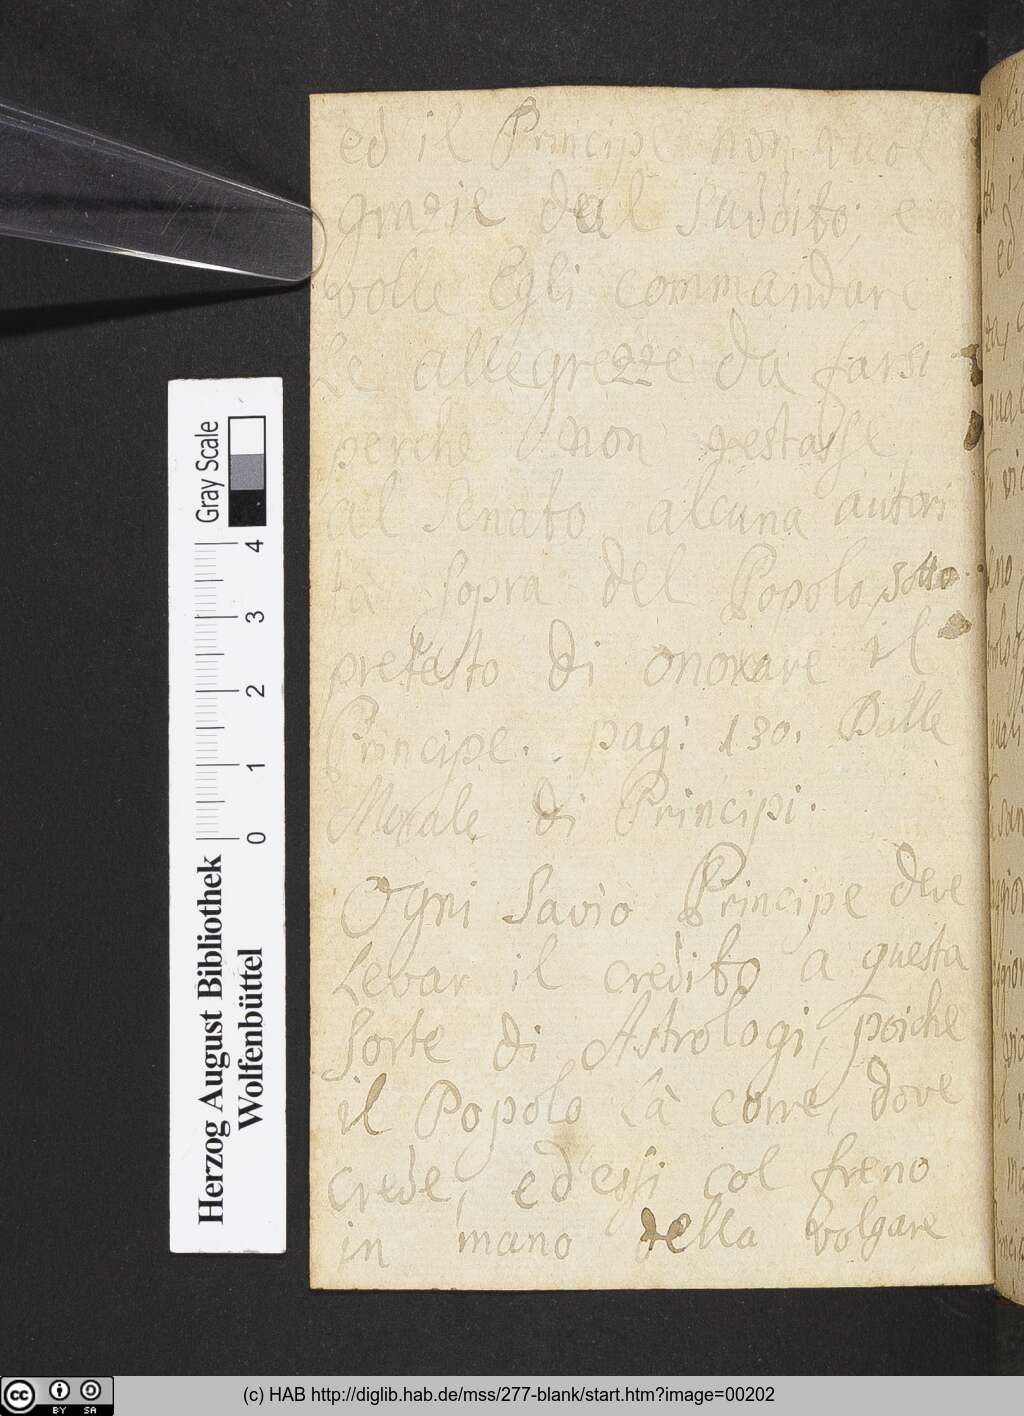 ed il Principe non vuol
grazie dal Suddito, e
volle Egli commandare
Le allegrezze da farsi
perche non restasse
al Senato alcuna autori
ta sopra del Popolo, sotto
pretesto di onorare il
Principe. pag: 130. Dalle
Morale di Principi.
Ogni Savio Principe deve
Levar il credito a questa
Sorte di Astrologi, poiche
il Popolo là corre, dove
crede, ed essi col freno
in mano della volgare
Gray Scale
0 1 2 3 4
Herzog August Bibliothek
Wolfenbüttel
cc BY SA
(c) HAB http://diglib.hab.de/mss/277-blank/start.htm?image=00202